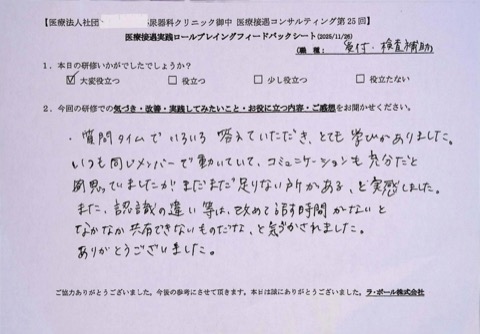 【医療法人社団 尿器科クリニック御中 医療接遇コンサルティング第25回】
医療接遇実践ロールプレイングフィードバックシート(2025/11/26)
(職 種: 受付・検査補助)
1.本日の研修いかがでしたでしょうか?
☑ 大変役立つ □ 役立つ □ 少し役立つ □ 役立たない
2.今回の研修での気づき・改善・実践してみたいこと・お役に立つ内容・ご感想をお聞かせください。
・質問タイムでいろいろ答えていただき、とても学びがありました。
いつも同じメンバーで動いていて、コミュニケーションも充分だと
思っていましたが まだまだ足りない所がある、と実感しました。
また、認識の違い等は、改めて話す時間がないと
なかなか共有できないものだな、と気づかされました。
ありがとうございました。
ご協力ありがとうございました。今後の参考にさせて頂きます。本日は誠にありがとうございました。 ラ・ポール株式会社